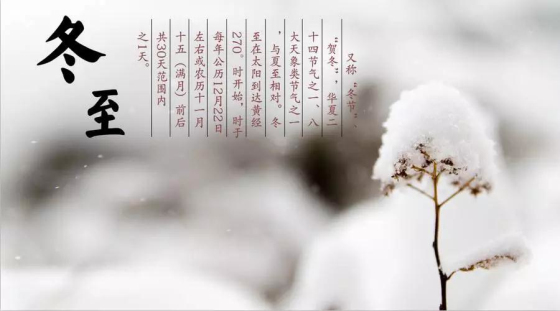 冬至
又称“冬节”、
“贺冬”，华夏二
十四节气之一、八
大天象类节气之一
，与夏至相对。冬
至在太阳到达黄经
270。时开始，时于
每年公历12月22日
左右或农历十一月
十五（满月）前后
共30天范围内
之1天。